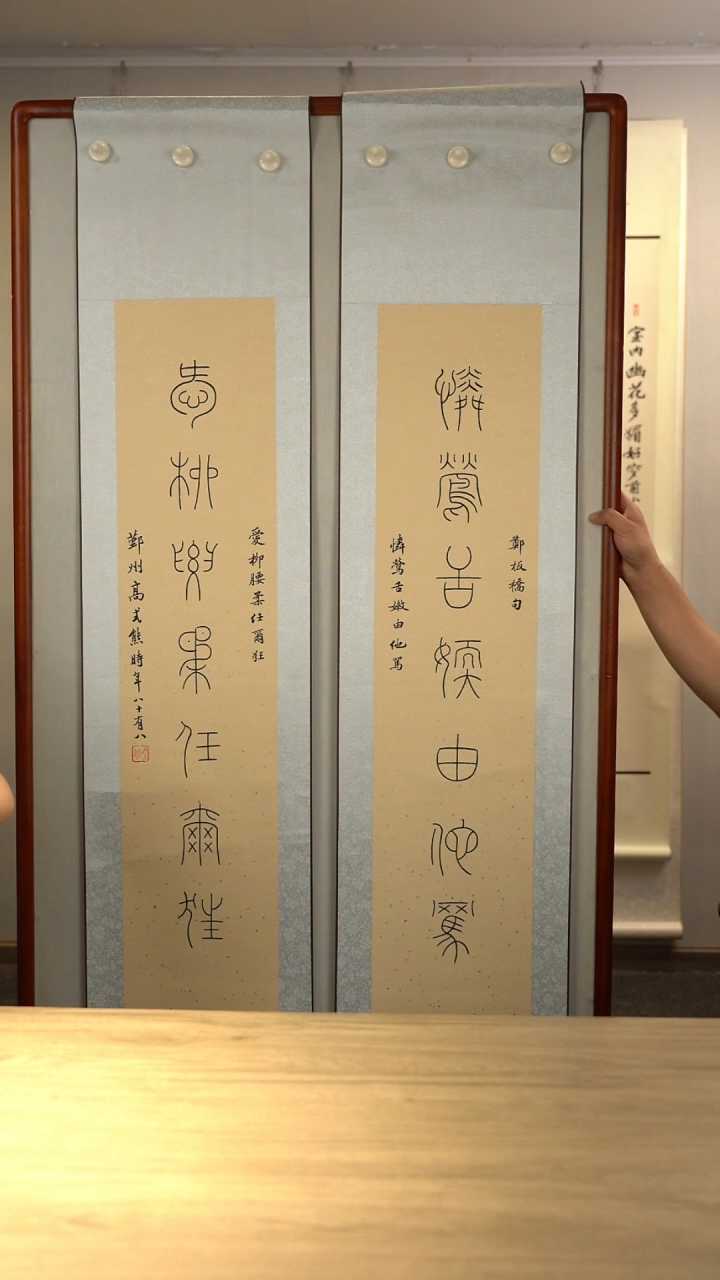 鄭板橋句
憐鶯舌嫩由他罵
憐鶯舌嫩由他罵
愛柳腰柔任爾狂
愛柳腰柔任爾狂
鄞州高式熊時年八十有八
室内幽花多